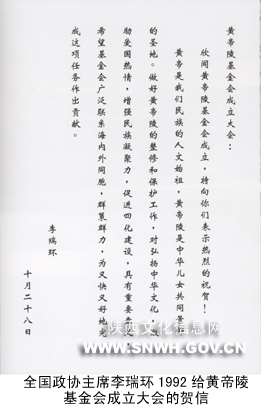 黄帝陵基金会成立大会：
欣闻黄帝陵基金会成立，特向你们表示热烈的祝贺！
黄帝是我们民族的人文始祖，黄帝陵是中华儿女共同景仰
的圣地。做好黄帝陵的整修和保护工作，对弘扬中华文化，激
励爱国热情，增强民族凝聚力，促进四化建设，具有重要意义。
希望基金会广泛联系海内外同胞，群策群力，为又快又好地完
成这项任务作出贡献。
李瑞环
十月二十八日
陕西文化信息网
WWW.SNWH.GOV.CN
全国政协主席李瑞环1992给黄帝陵
基金会成立大会的贺信